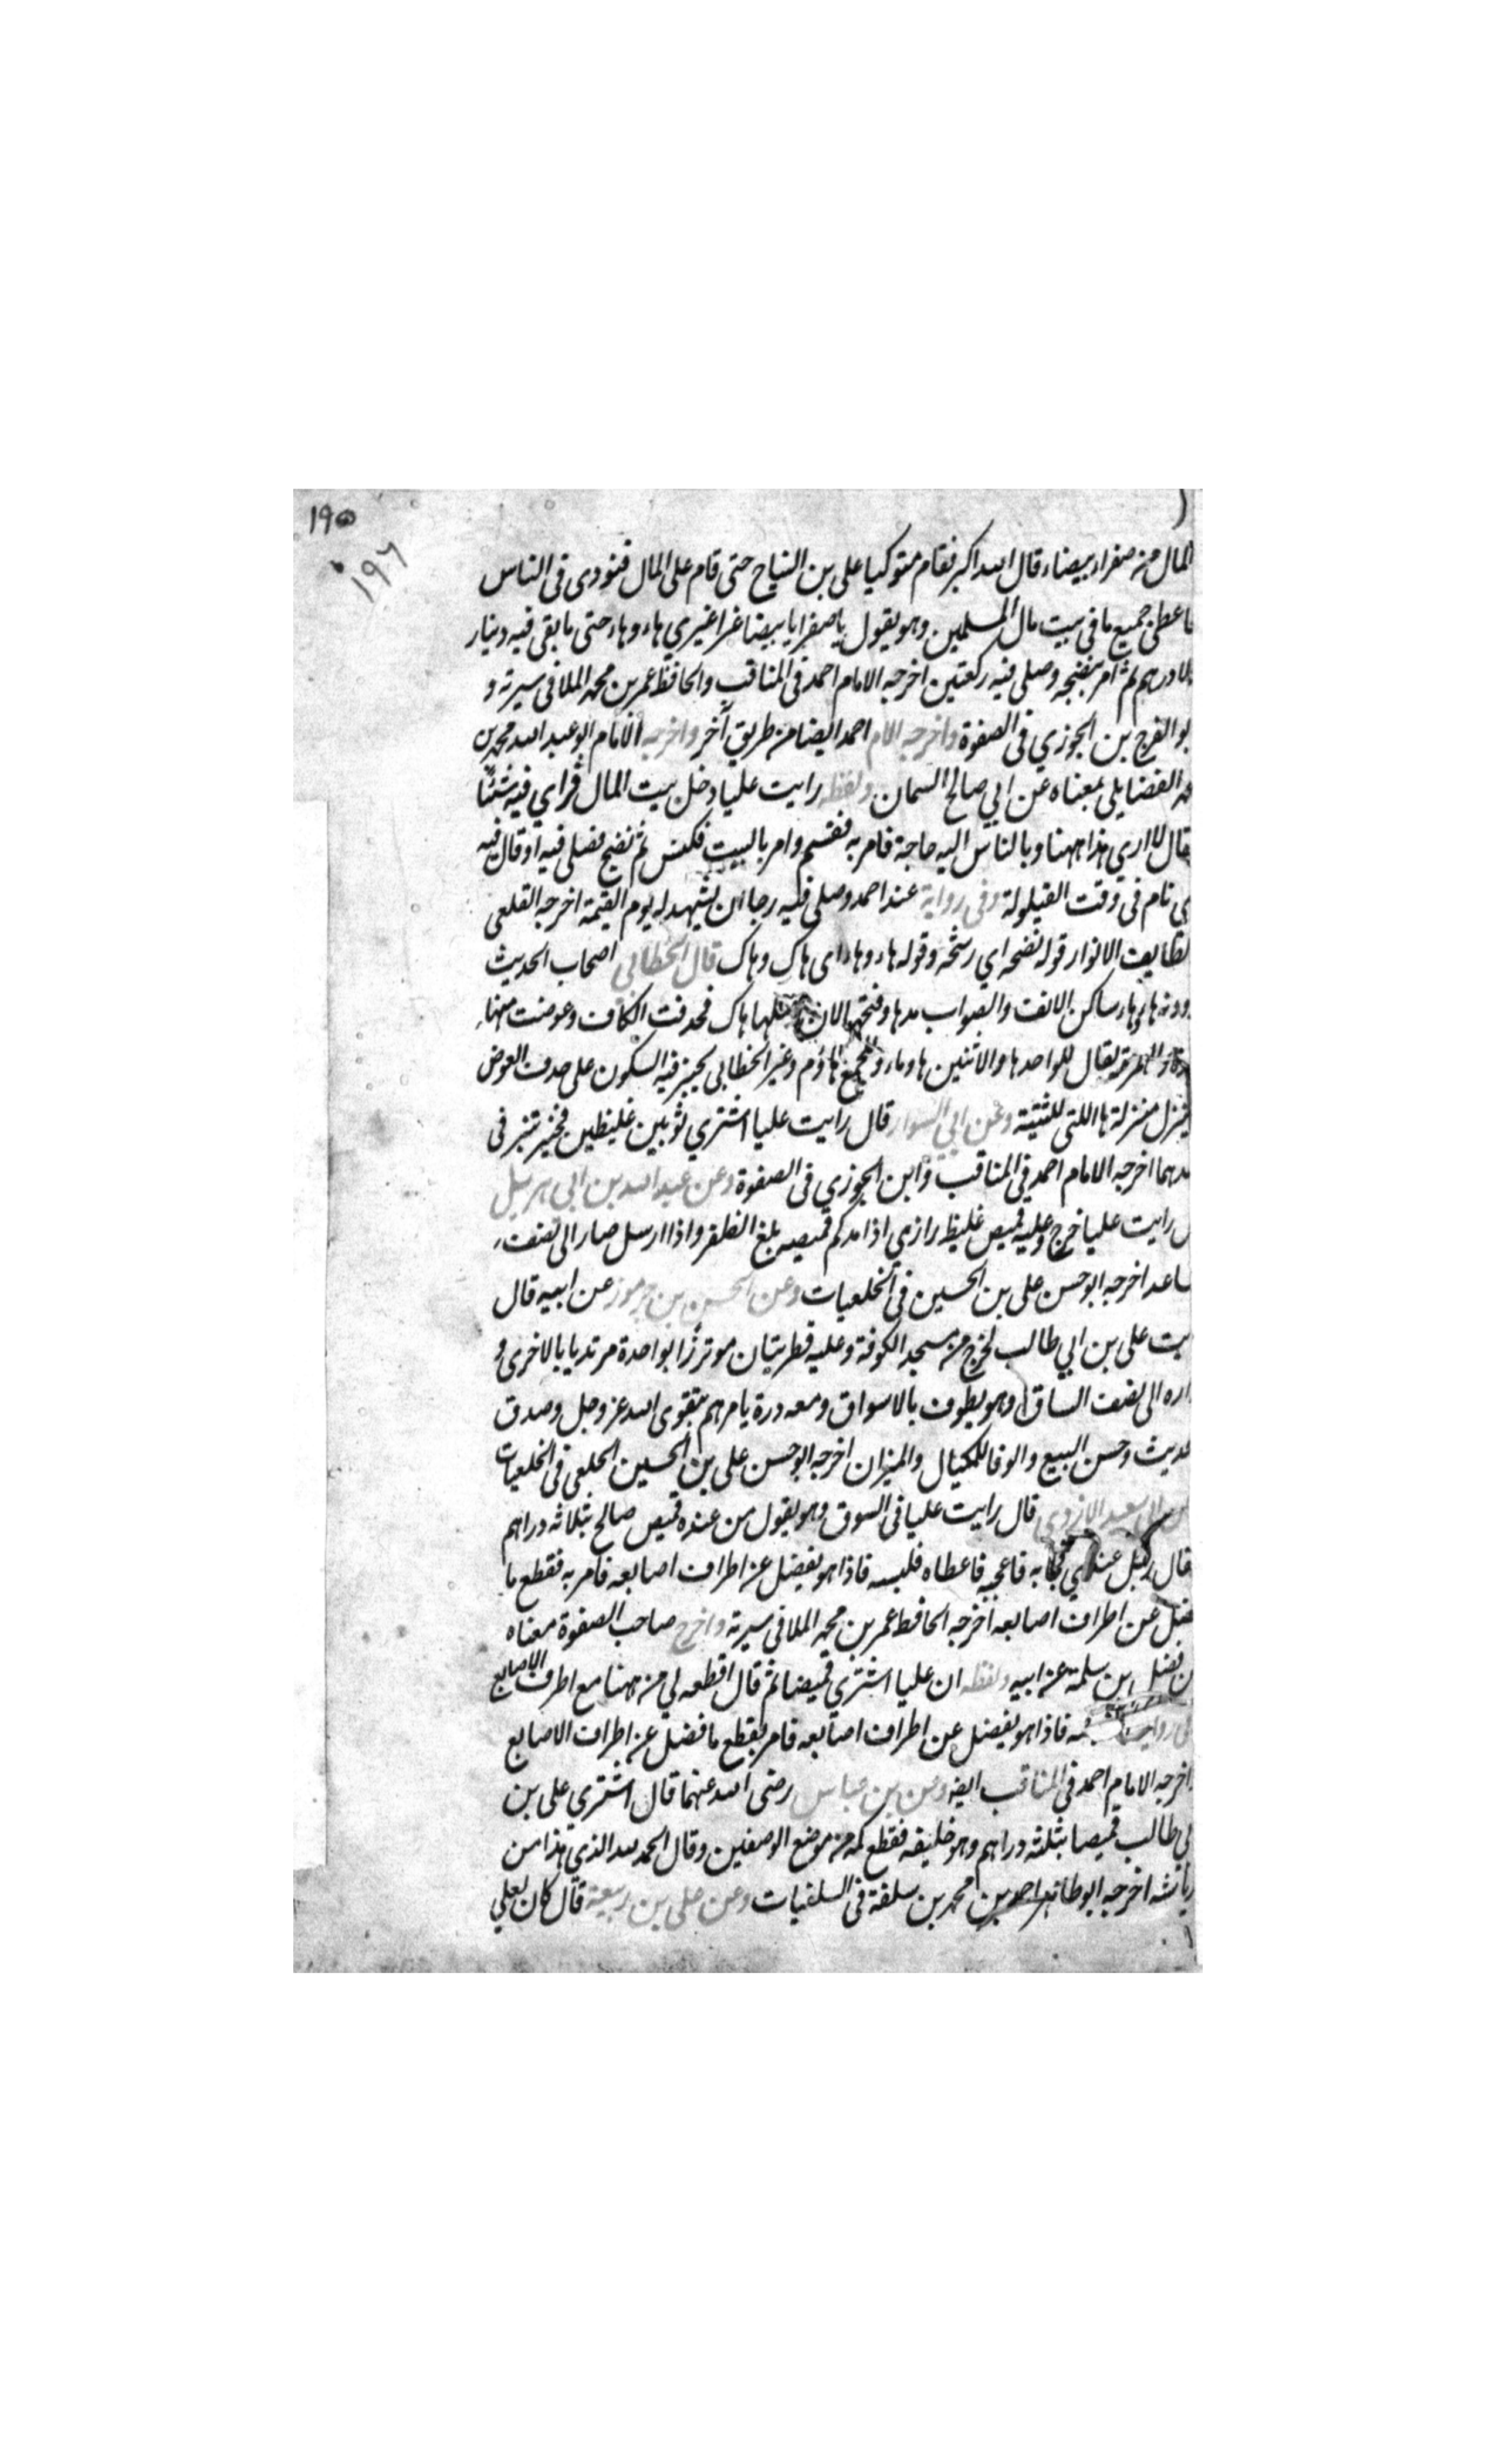 ١٩٥
١٩٦
المال من صفراء بيضاء قال الله اكبر فقام متوكيا على بن النباح حتى قام على المال فنودى فى الناس
فاعطى جميع ما فى بيت مال المسلمين وهو يقول يا صفرا يا بيضا غرا غيري هاء وهاء حتى ما بقى فيه دينار
ولا درهم ثم امر بنضحه وصلى فيه ركعتين اخرجه الامام احمد فى المناقب والحافظ عمر بن محمد الملا فى سيرته و
ابو الفرج بن الجوزي فى الصفوة واخرجه الامام احمد ايضا من طريق آخر واخرجه الامام ابو عبد الله محمد بن
الفضايلى بمعناه عن ابي صالح السمان ولفظه رايت عليا دخل بيت المال فراي فيه شيئا
فقال لا اري هذا ههنا وبالناس اليه حاجة فامر به فقسم وامر بالبيت فكنس ثم نضح فصلى فيه او قال فيه
نام فى وقت القيلولة وفى رواية عند احمد وصلى فيه رجا ان يشهد له يوم القيمة اخرجه القلعى
الانوار قوله نضحه اي رشحه وقوله هاء وهاء اى هاك وهاك قال الخطابي اصحاب الحديث
ها وها ساكن الالف والصواب مدها وفتحها لان اصلها هاك فحذفت الكاف وعوضت منها
والهمزة يقال للواحد ها والاثنين هاوما وللجميع هاؤم وغير الخطابى يجيز فيه السكون على حذف العوض
ينزل منزلة ها اللتى للتنبيه وعن ابي السوار قال رايت عليا اشتري ثوبين غليظين فخير قنبر فى
احدهما اخرجه الامام احمد فى المناقب وابن الجوزي فى الصفوة وعن عبد الله بن ابى هزيل
رايت عليا خرج وعليه قميص غليظ رازي اذا مد كم قميصه بلغ الظفر واذا ارسل صار الى نصف
ساعد اخرجه ابو حسن على بن الحسين فى الخلعيات وعن الحسن بن جرموز عن ابيه قال
رايت على بن ابي طالب يخرج من مسجد الكوفة وعليه قطريتان موتزرا بواحدة مرتديا بالاخرى و
ازاره الى نصف الساق وهو يطوف بالاسواق ومعه درة يامرهم بتقوى الله عز وجل وصدق
الحديث وحسن البيع والوفا للمكيال والميزان اخرجه ابو حسن على بن الحسين الخلعى فى الخلعيات
عن ابى سعيد الازدي قال رايت عليا فى السوق وهو يقول من عنده قميص صالح بثلاثه دراهم
فقال رجل عندي فجا به فاعجبه فاعطاه فلبسه فاذا هو يفضل عن اطراف اصابعه فامر به فقطع ما
فضل عن اطراف اصابعه اخرجه الحافظ عمر بن محمد الملا فى سيرته واخرج صاحب الصفوة معناه
عن فضل ابن سلمة عن ابيه ولفظه ان عليا اشتري قميصا ثم قال اقطعه لي من ههنا مع اطراف الاصابع
فى رواية فاذا هو يفضل عن اطراف اصابعه فامر بقطع ما فضل عن اطراف الاصابع
اخرجه الامام احمد فى المناقب ايضه وعن بن عباس رضى الله عنهما قال اشترى على بن
ابي طالب قميصا بثلثه دراهم وهو خليفه فقطع كمه من موضع الوصفين وقال الحمد لله الذي هذا من
رياشه اخرجه ابو طاهر احمد بن محمد بن سلفة فى السلفيات وعن على بن ربيعة قال كان لعلي